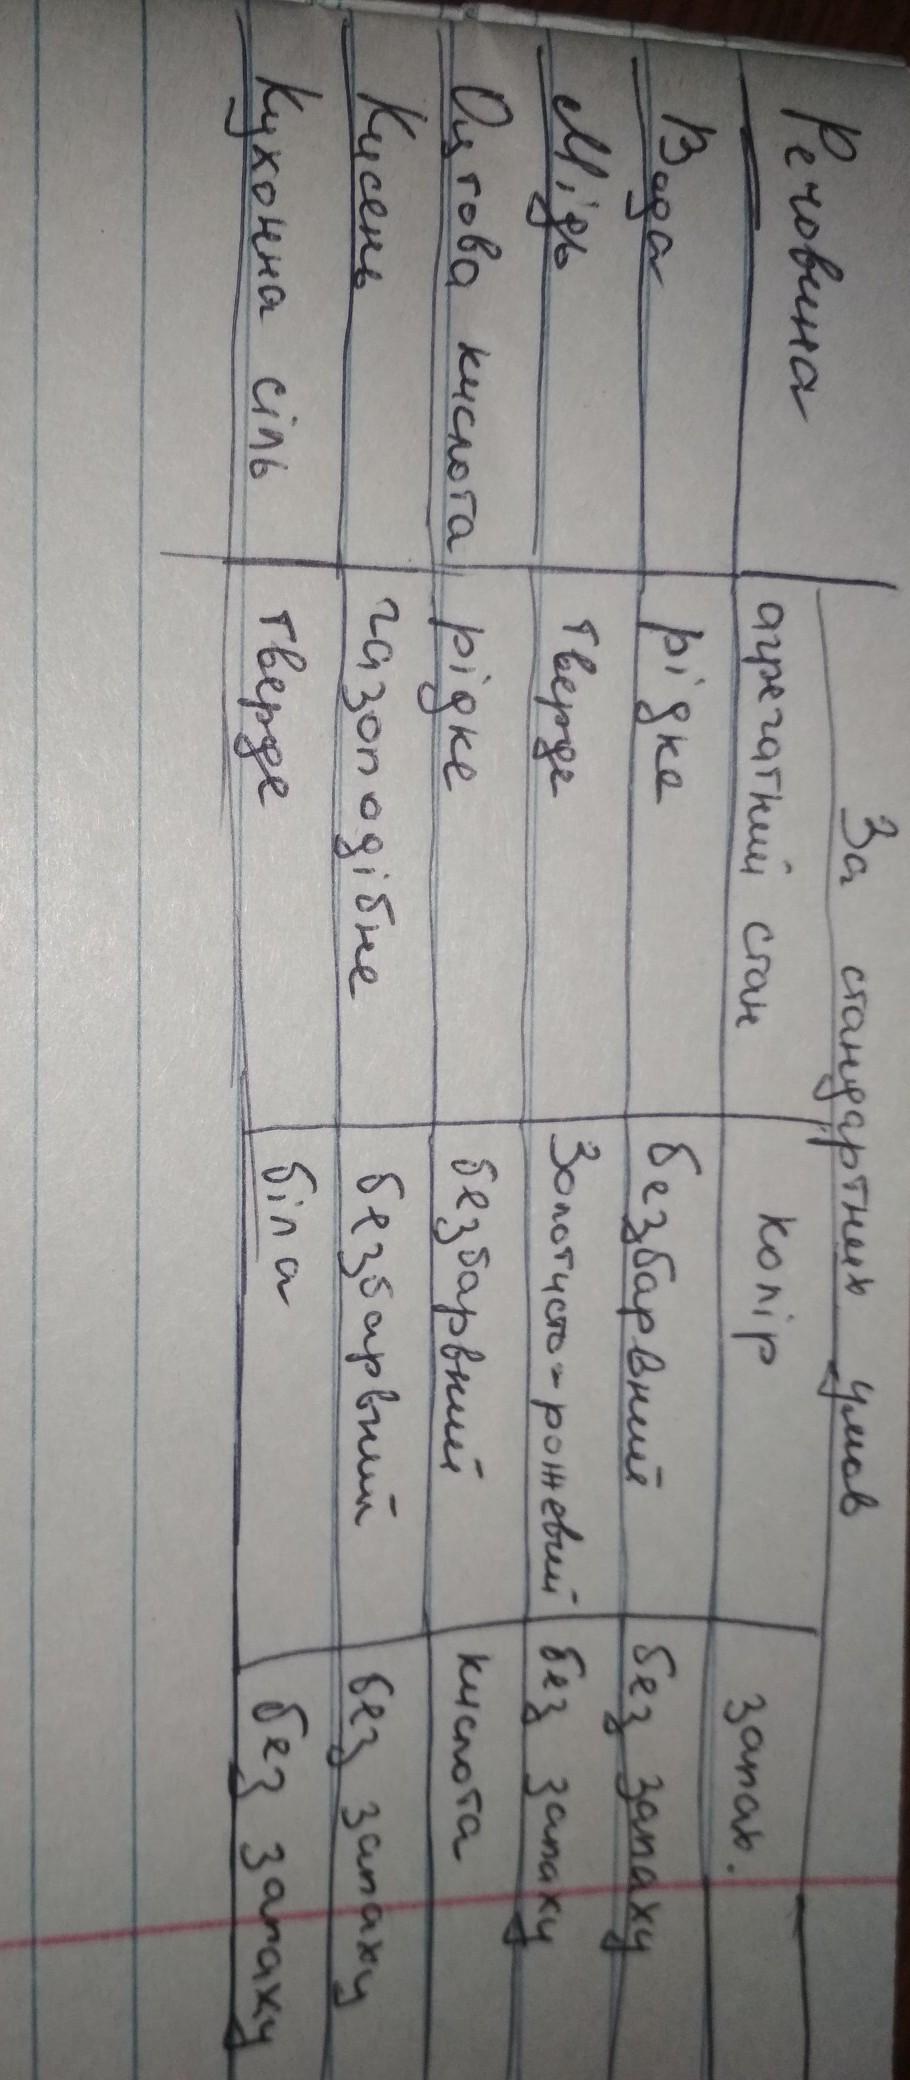 Речовина За стандартних умов
агрегатний стан колір запах.
Вода рідке безбарвний без запаху
Мідь тверде Золотисто-рожевий без запаху
Оцтова кислота рідке безбарвний кислота
Кисень газоподібне безбарвний без запаху
Кухонна сіль тверде біла без запаху